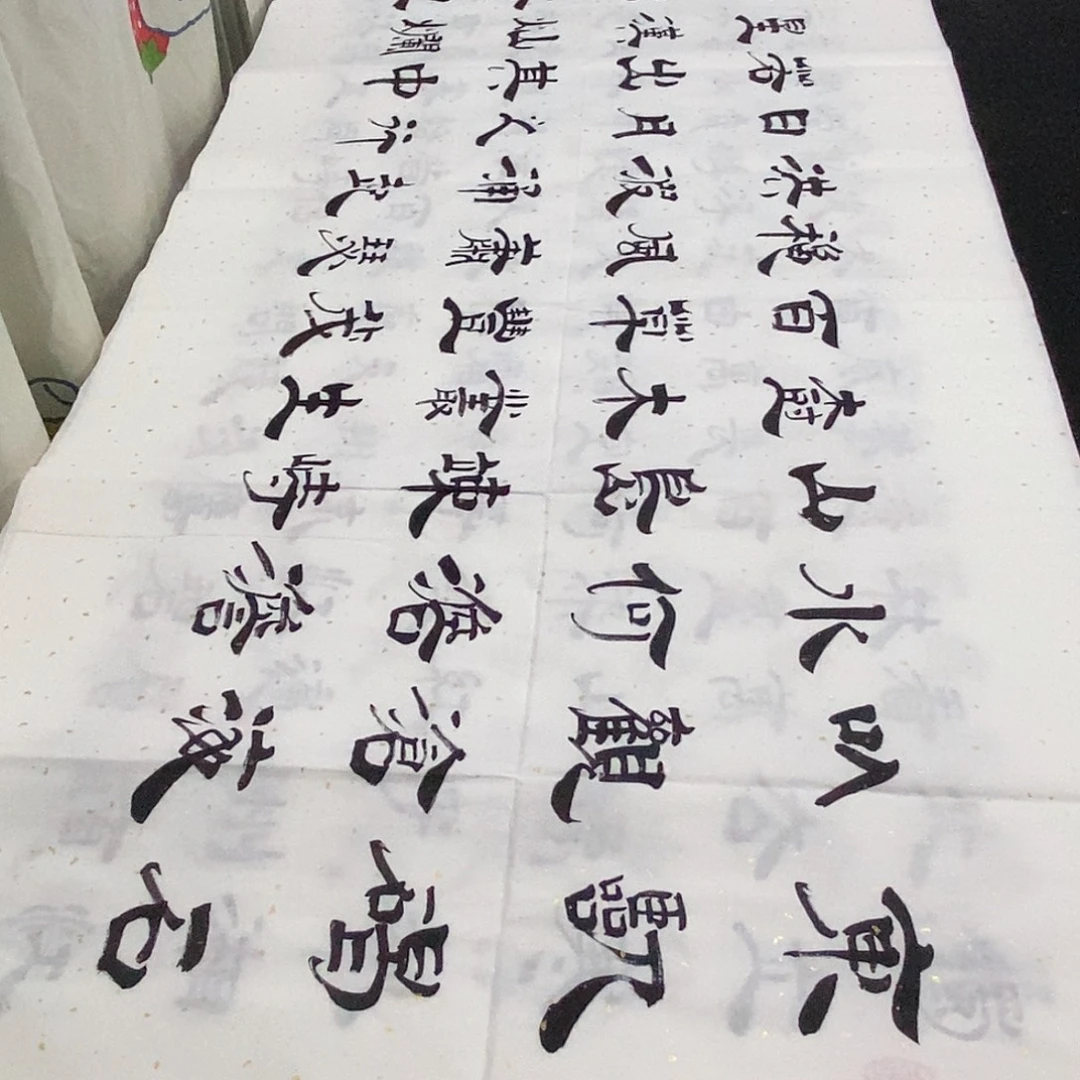 東臨碣石
以觀滄海
水何澹澹
山島竦峙
樹木叢生
百草豐茂
秋風蕭瑟
洪波涌起
日月之行
若出其中
星漢灿爛